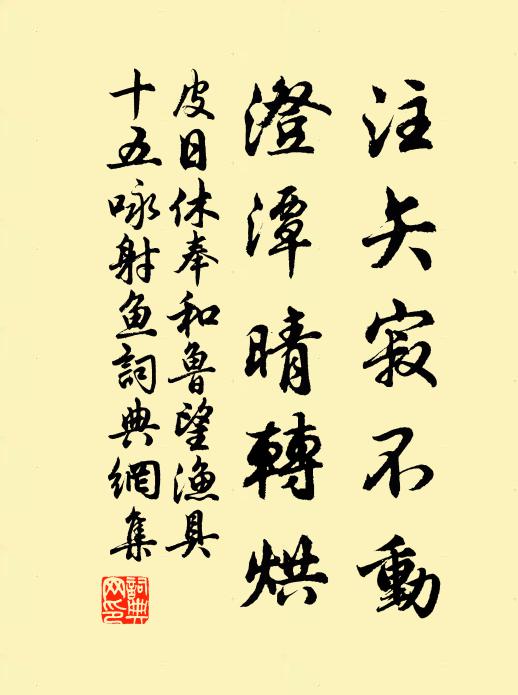 注矢寂不動
澄潭晴轉烘
皮日休奉和魯望漁具
十五咏射魚詞典網集
詞典
网印